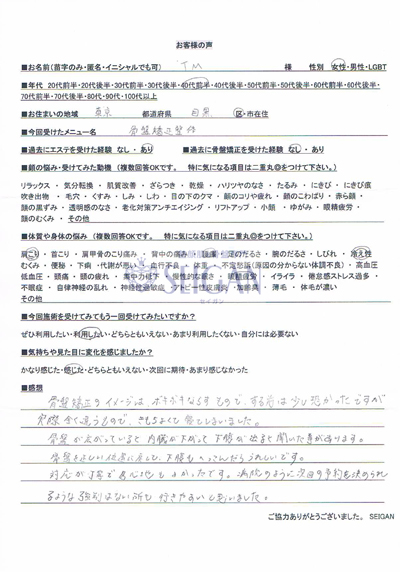 お客様の声
■お名前(苗字のみ・匿名・イニシャルでも可) TM 様 性別 女性・男性・LGBT
■年代 20代前半・20代後半・30代前半・30代後半・40代前半・40代後半・50代前半・50代後半・60代前半・60代後半・
70代前半・70代後半・80代・90代・100代以上
■お住まいの地域 東京 都道府県 目黒 区・市在住
■今回受けたメニュー名 骨盤矯正整体
■過去にエステを受けた経験 なし・あり ■過去に骨盤矯正を受けた経験 なし・あり
■顔の悩み・受けてみた動機 (複数回答OKです。 特に気になる項目は二重丸◎をつけて下さい。)
リラックス ・ 気分転換 ・ 肌質改善 ・ ざらつき ・ 乾燥 ・ ハリツヤのなさ ・ たるみ ・ にきび ・ にきび痕
吹き出物 ・ 毛穴 ・ くすみ ・ しみ ・ しわ ・ 目の下のクマ ・ 顔のコリや疲れ ・ 顔のこわばり ・ 赤ら顔 ・
顔の黒ずみ ・ 透明感のなさ ・ 老化対策アンチエイジング ・ リフトアップ ・ 小顔 ・ ゆがみ ・ 眼精疲労 ・
顔のむくみ ・ その他
■体質や身体の悩み (複数回答OKです。 特に気になる項目は二重丸◎をつけて下さい。)
肩こり ・ 首こり ・ 肩甲骨のこり痛み ・ 背中の痛み ・ 腰痛 ・ 足のだるさ ・ 腕のだるさ ・ しびれ ・ 冷え性
むくみ ・ 便秘 ・ 下痢 ・ 代謝が悪い ・ 血行不良 ・ 体重 ・ 不定愁訴(原因の分からない体調不良) ・ 高血圧
低血圧 ・ 頭痛 ・ 頭の疲れ ・ 集中力低下 ・ 慢性的な眠さ ・ 眼精疲労 ・ イライラ ・ 倦怠感ストレス過多
・不眠症 ・ 自律神経の乱れ ・ 神経過敏症 ・ アトピー性皮膚炎 ・ 加齢臭 ・ 薄毛 ・ 体毛が濃い
その他
SEIGAN
セイガン
■今回施術を受けてみてもう一回受けてみたいですか?
ぜひ利用したい・利用したい・どちらともいえない・あまり利用したくない・自分には必要ない
■気持ちや見た目に変化を感じましたか?
かなり感じた・感じた・どちらともいえない・次回に期待・あまり感じなかった
■感想
骨盤矯正のイメージは ボキボキならすもので、する前は少し恐かったですが
実際 全く違うもので、きもちよくて 寝てしまいました。
骨盤が広がっていると 内臓が下がって 下腹が出ると聞いた事が有ります。
骨盤を正しい位置に戻して、下腹も へっこんだらうれしいです。
対応が丁寧で居心地もよかったです。病院のように次回の予約を決められ
るような強制はない所も 行きやすいと思いました。
ご協力ありがとうございました。 SEIGAN